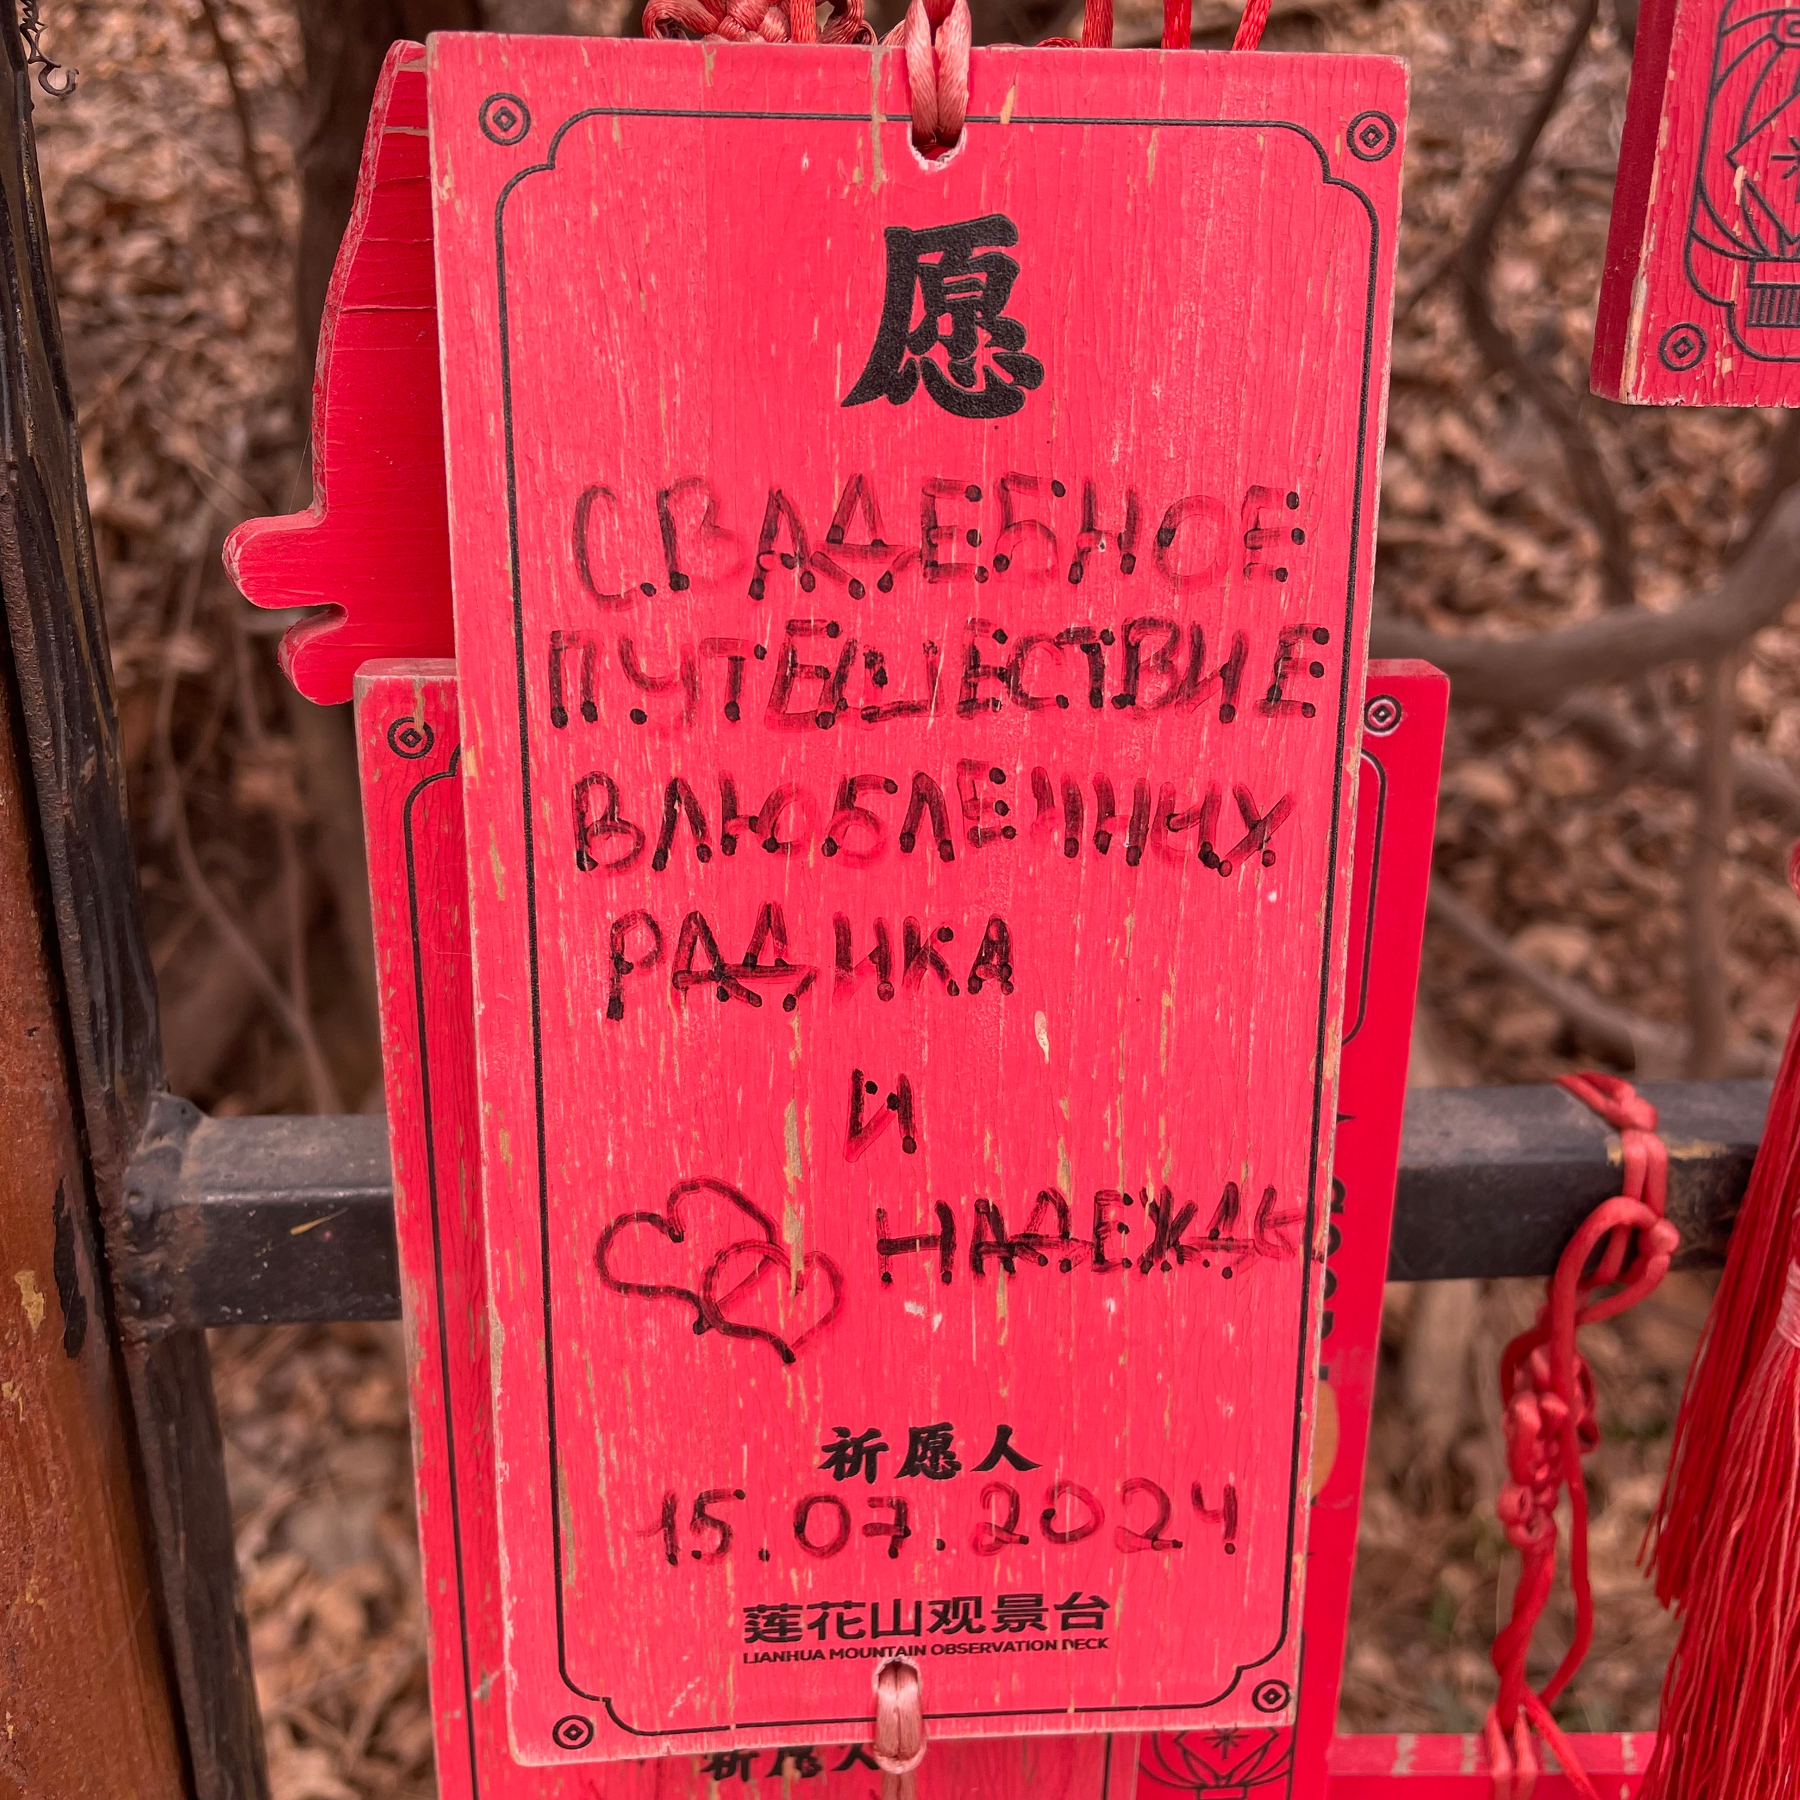 愿
СВАДЕБНОЕ
ПУТЕШЕСТВИЕ
ВЛЮБЛЕННЫХ
РАДИКА
И
НАДЕЖДЫ
祈愿人
15.07.2024
莲花山观景台
LIANHUA MOUNTAIN OBSERVATION DECK
祈愿人